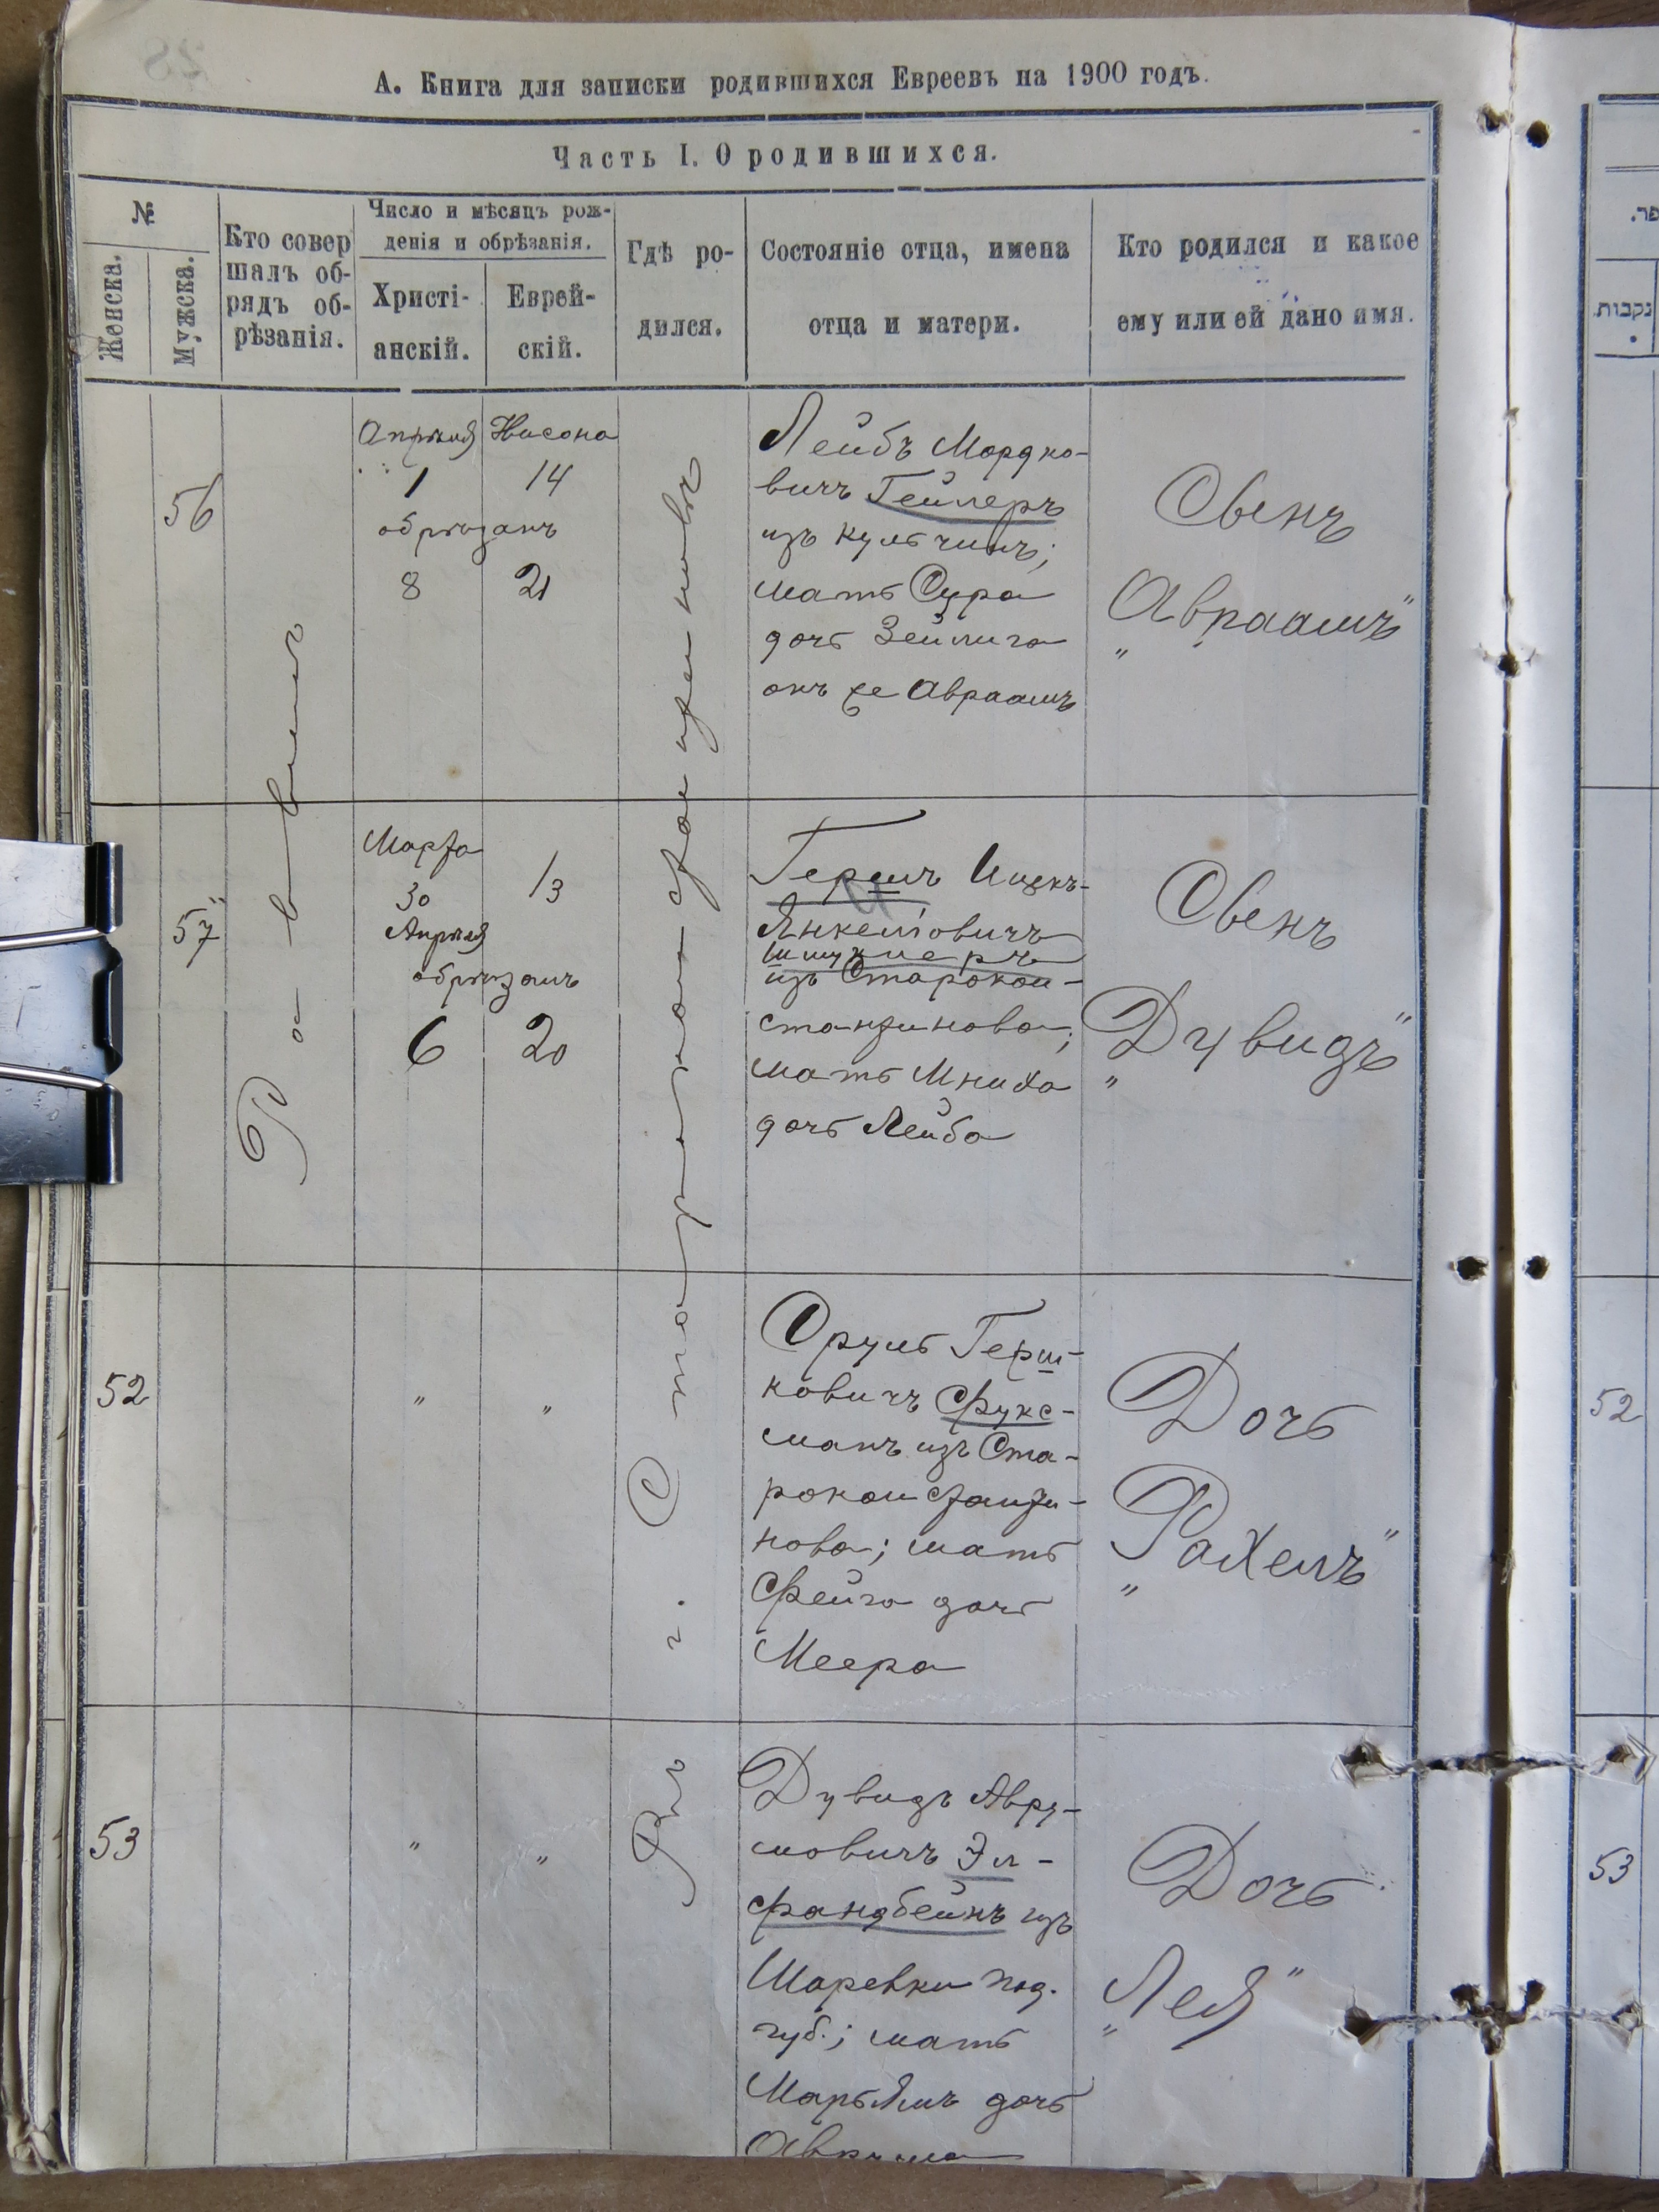 А. Книга для записки родившихся Евреевъ на 1900 годъ.
Часть I. О родившихся.
№
Женска.
Мужска.
Кто совер
шалъ об-
рядъ об-
рѣзанія.
Число и мѣсяцъ рож-
денія и обрѣзанія.
Христі-
анскій.
Еврей-
скій.
Гдѣ ро-
дился.
Состояніе отца, имена
отца и матери.
Кто родился и какое
ему или ей дано имя.
Раввинъ
Въ г. Староконстантиновѣ
56
Апрѣля Нисона
1 14
обрѣзанъ
8 21
Лейбъ Мордко-
вичъ Гейлеръ
изъ Кульчинъ;
мать Сура
дочь Зейлига
онъ же Авраамъ
Сынъ
"Авраамъ"
57
Марта
30 13
Апрѣля
обрѣзанъ
6 20
Гершъ Ицекъ-
Янкелiовичъ
Шмуклеръ
изъ Старокон-
стантинова;
мать Мниха
дочь Лейба
Сынъ
"Дувидъ"
52
" "
Сруль Герш-
ковичъ Фукс-
манъ изъ Ста-
роконстанти-
нова; мать
Фейга дочь
Меера
Дочь
"Рахель"
53
" "
Дувидъ Авру-
мовичъ Эл-
фандбейнъ изъ
Шаревки под.
губ.; мать
Марьямъ дочь
Аврума
Дочь
"Лея"
.רפ
נקבות.
52
53